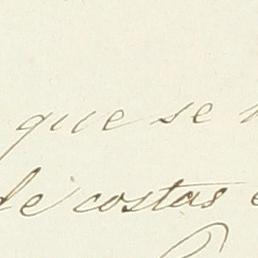 que se
de costas